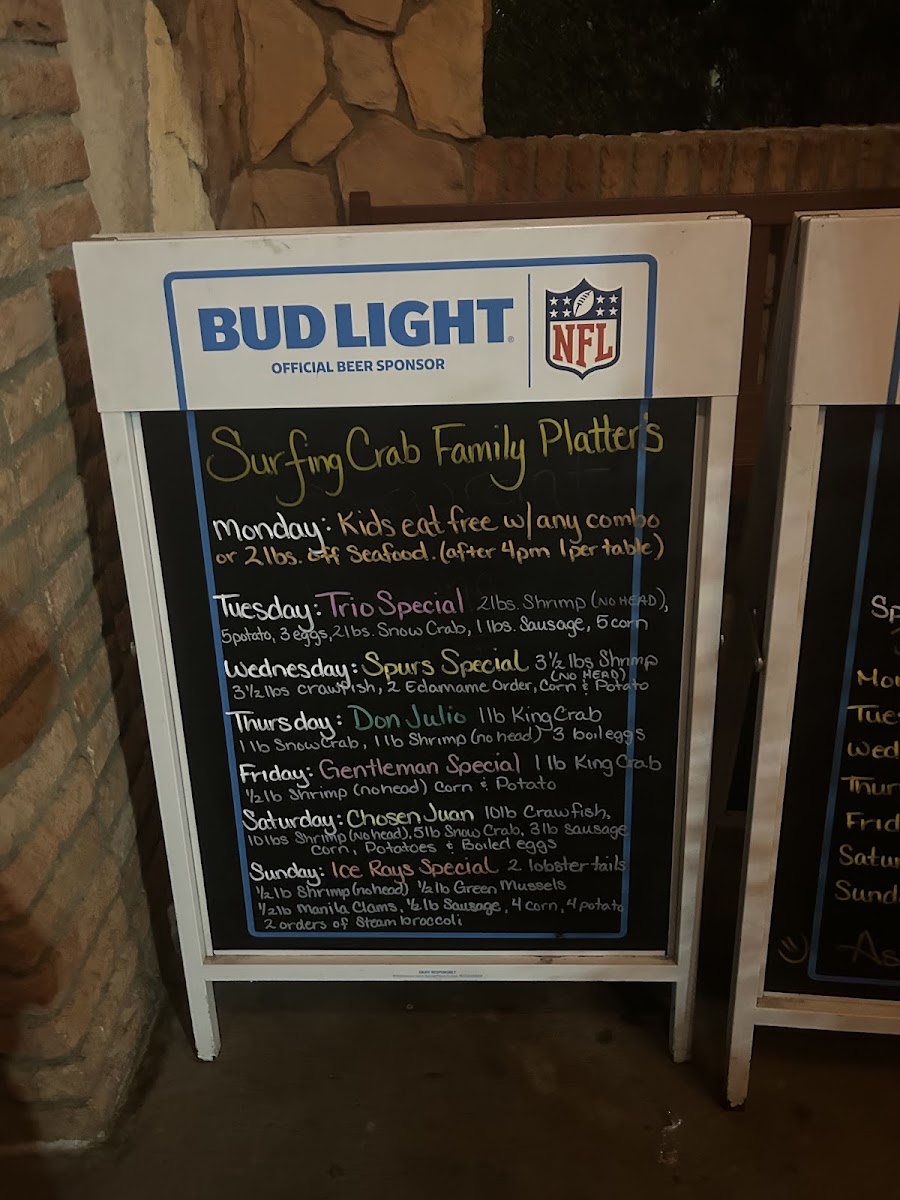 BUD LIGHT
OFFICIAL BEER SPONSOR
NFL
Surfing Crab Family Platter's
Monday: Kids eat free w/ any combo
or 2 lbs. off Seafood. (after 4pm 1 per table)
Tuesday: Trio Special 2lbs. Shrimp (NO HEAD),
5 potato, 3 eggs, 2 lbs. Snow Crab, 1 lbs. Sausage, 5 corn
Wednesday: Spurs Special 3 ½ lbs Shrimp
(NO HEAD)
3 ½ lbs crawfish, 2 Edamame Order, Corn & Potato
Thursday: Don Julio 1 lb King Crab
1 lb Snow Crab, 1 lb Shrimp (no head) 3 boil eggs
Friday: Gentleman Special 1 lb King Crab
½ lb Shrimp (no head) Corn & Potato
Saturday: Chosen Juan 10lb Crawfish,
10lbs Shrimp (No head), 5lb Snow Crab, 3lb Sausage
Corn, Potatoes & Boiled eggs
Sunday: Ice Rays Special 2 lobster tails
½ lb Shrimp (no head) ½ lb Green Mussels
½ lb Manila Clams, ½ lb Sausage, 4 corn, 4 potato
2 orders of Steam broccoli
Sp
Mon
Tues
Wed
Thur
Frid
Satur
Sund
As